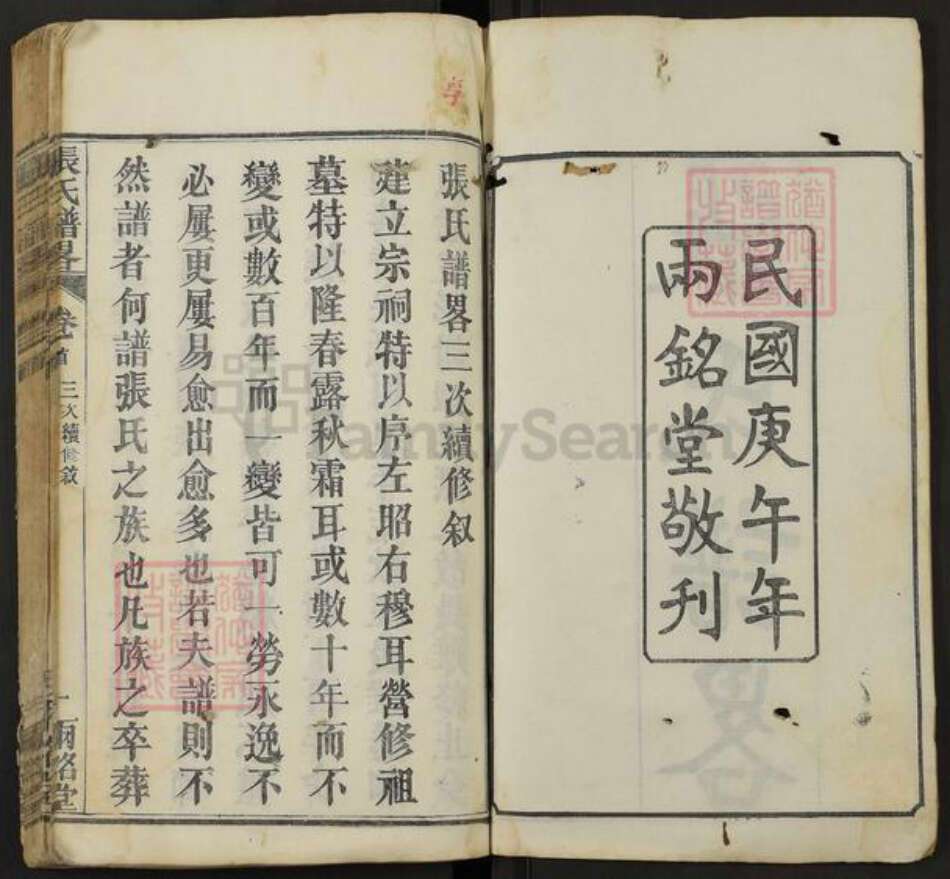 民國庚午年
兩銘堂敬刊
享
張氏譜畧三次續修叙
建立宗祠特以序左昭右穆耳營修祖
墓特以隆春露秋霜耳或數十年而不
變或數百年而一變皆可一勞永逸不
必屢更屢易愈出愈多也若夫譜則不
然譜者何譜張氏之族也凡族之卒葬
張氏譜畧
卷首
三次續修敘
一
兩銘堂
FamilySearch